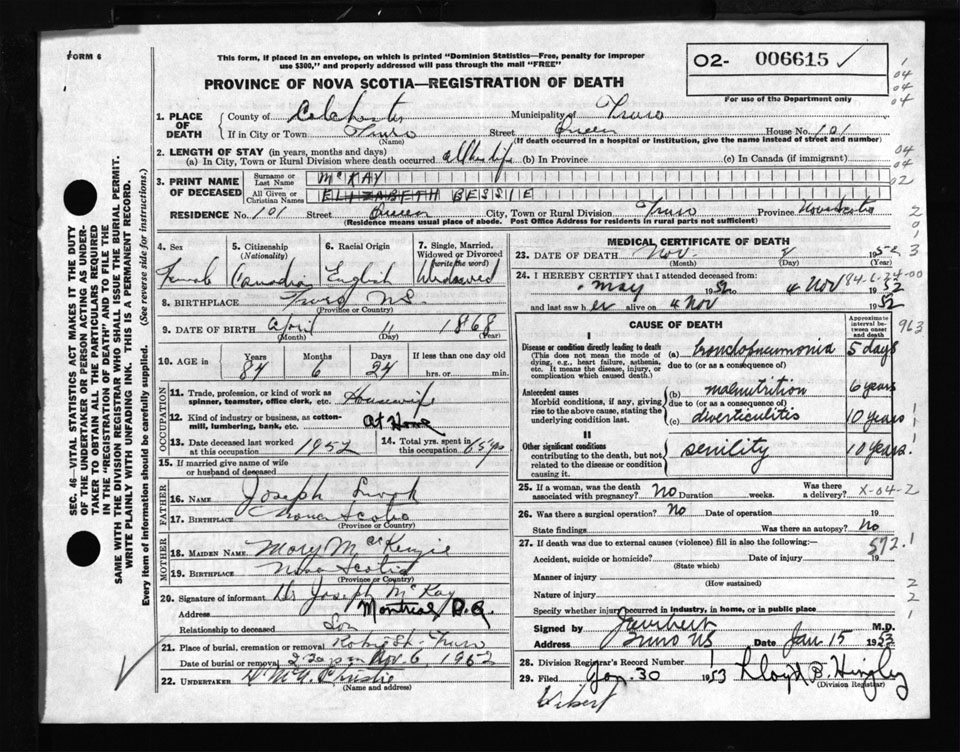 FORM 6
This form, if placed in an envelope, on which is printed "Dominion Statistics—Free, penalty for improper
use $300," and properly addressed will pass through the mail "FREE"
PROVINCE OF NOVA SCOTIA—REGISTRATION OF DEATH
O2- 006615 ✓
For use of the Department only
1. PLACE OF DEATH
County of Colchester Municipality of Truro
If in City or Town Truro Street Queen House No. 101
(Name) (If death occurred in a hospital or institution, give its name instead of street and number)
2. LENGTH OF STAY (in years, months and days)
(a) In City, Town or Rural Division where death occurred all her life (b) In Province (c) In Canada (if immigrant)
3. PRINT NAME OF DECEASED
Surname or Last Name McKAY
All Given or Christian Names ELIZABETH BESSIE
RESIDENCE No. 101 Street Queen City, Town or Rural Division Truro Province Nova Scotia
(Residence means usual place of abode. Post Office Address for residents in rural parts not sufficient)
4. Sex Female
5. Citizenship (Nationality) Canadian
6. Racial Origin English
7. Single, Married, Widowed or Divorced (write the word) Widowed
8. BIRTHPLACE Truro N.S.
(Province or Country)
9. DATE OF BIRTH April 11 1868
(Month) (Day) (Year)
10. AGE in Years 84 Months 6 Days 24 If less than one day old hrs. or min.
OCCUPATION
11. Trade, profession, or kind of work as spinner, teamster, office clerk, etc. Housewife
12. Kind of industry or business, as cotton-mill, lumbering, bank, etc. At Home
13. Date deceased last worked at this occupation 1952
14. Total yrs. spent in this occupation 65 yrs
15. If married give name of wife or husband of deceased
FATHER
16. NAME Joseph
17. BIRTHPLACE Nova Scotia
(Province or Country)
MOTHER
18. MAIDEN NAME Mary McKenzie
19. BIRTHPLACE Nova Scotia
(Province or Country)
20. Signature of informant Dr Joseph McKay
Address Montreal P.Q.
Relationship to deceased Son
21. Place of burial, cremation or removal Robie St. Truro
Date of burial or removal 2:30 pm Nov 6, 1952
22. UNDERTAKER
(Name and address)
MEDICAL CERTIFICATE OF DEATH
23. DATE OF DEATH Nov. 1952
(Month) (Day)
24. I HEREBY CERTIFY that I attended deceased from:
May 1952 4 Nov 1952
and last saw her alive on 4 Nov 1952
CAUSE OF DEATH
Approximate interval between onset and death
I
Disease or condition directly leading to death
(This does not mean the mode of dying, e.g., heart failure, asthenia, etc. It means the disease, injury, or complication which caused death.)
(a) bronchopneumonia 5 days
due to (or as a consequence of)
Antecedent causes
Morbid conditions, if any, giving rise to the above cause, stating the underlying condition last.
(b) malnutrition 6 years
due to (or as a consequence of)
(c) diverticulitis 10 years
II
Other significant conditions
contributing to the death, but not related to the disease or condition causing it.
senility 10 years
25. If a woman, was the death associated with pregnancy? No Duration weeks. Was there a delivery?
X-04-2
26. Was there a surgical operation? No Date of operation 19
State findings Was there an autopsy? No
27. If death was due to external causes (violence) fill in also the following:—
572.1
Accident, suicide or homicide? Date of injury 19
(State which)
Manner of injury
(How sustained)
Nature of injury
Specify whether injury occurred in industry, in home, or in public place
Signed by M.D.
Address Truro NS Date Jan. 15 1953
28. Division Registrar's Record Number
29. Filed Jan. 30 1953 Lloyd B. Hingley
(Division Registrar)
SEC. 46—VITAL STATISTICS ACT MAKES IT THE DUTY
OF THE UNDERTAKER OR PERSON ACTING AS UNDER-
TAKER TO OBTAIN ALL THE PARTICULARS REQUIRED
IN THE "REGISTRATION OF DEATH" AND TO FILE THE
SAME WITH THE DIVISION REGISTRAR WHO SHALL ISSUE THE BURIAL PERMIT.
WRITE PLAINLY WITH UNFADING INK. THIS IS A PERMANENT RECORD.
Every item of information should be carefully supplied. (See reverse side for instructions.)